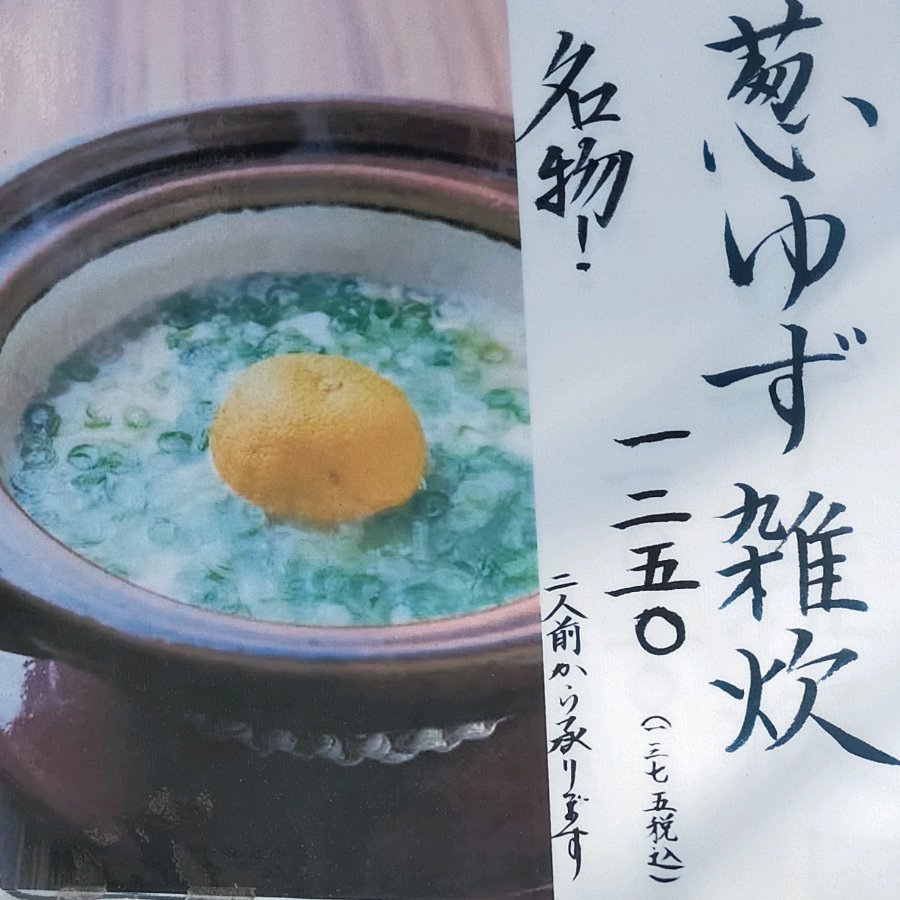 葱ゆず雑炊
一二五〇
(一三七五税込)
名物!
二人前から承ります